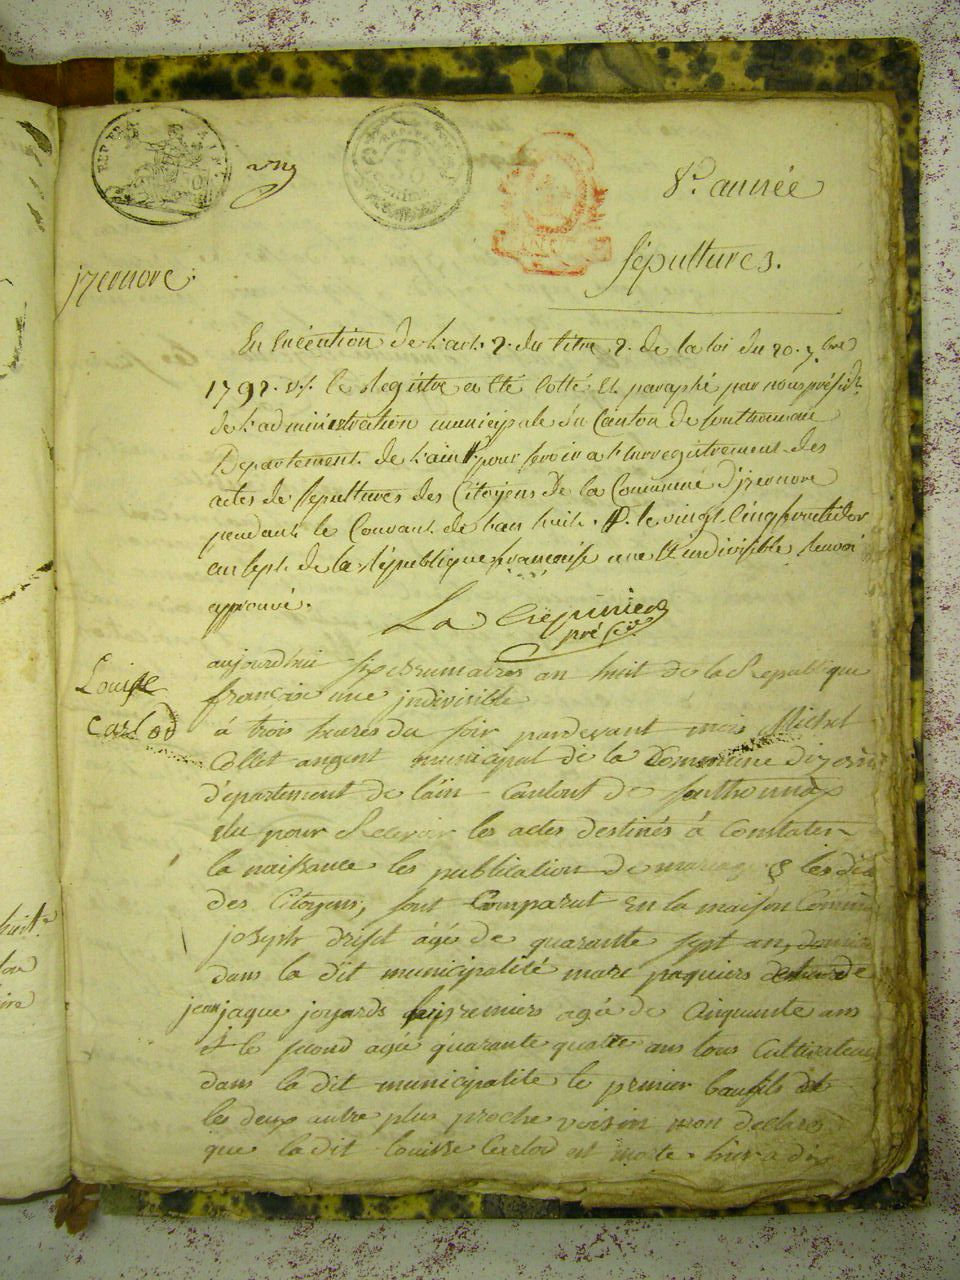 REP. FRA.
8e. année
sépultures.
izernore.
En Exécution de l'art. 2. du titre 2. de la loi du 20. 7.bre
1792. v.s. le Registre a été cotté et paraphé par nous présidt.
de l'administration municipale du Canton de Sonthonnax
Departement de l'ain pour servir a l'enregistrement des
actes de sepultures des Citoyens de la Commune d'izernore
pendant le Courant de l'an huit. le vingt Cinq fructidor
an sept de la République francaise une et indivisible
approuvé.
La Crepiniere
présidt
Louise
Carlod
aujourdhui six brumaires an huit de la Republique
française une indivisible
á trois heures du soir pardevant moi Michel
Collet angent municipal de la Commune dizerno
département de l'ain Cantont de Sonthonnax
Elu pour Recevoir les actes destinés á Constater
la naissance les publication de mariage & les dé
des Citoyens, sont Comparut En la maison Commu
joseph drist âgé de quarante sept an
dans la dit municipalité marc paquiers
jean jaque joyards le premiers agée de Cinquante ans
Et le second agé quarante quattre ans tous Cultivateu
dans la dit municipalité le premier baufils et
les deux autre plus proche voisin mon declaré
que ladit Louisse Carlod est morte hier a di